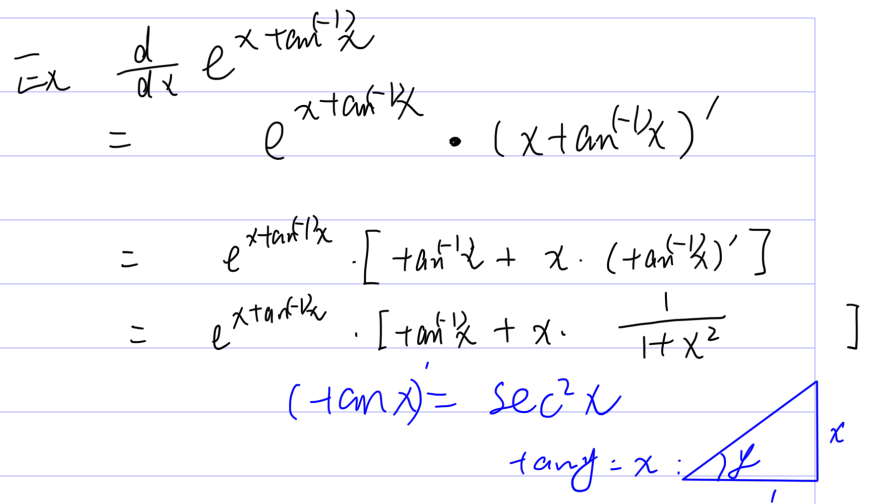 Ex d/dx e^{x tan^{(-1)}x}
= e^{x tan^{(-1)}x} • (x tan^{(-1)}x)'
= e^{x tan^{(-1)}x} · [tan^{(-1)}x + x · (tan^{(-1)}x)']
= e^{x tan^{(-1)}x} · [tan^{(-1)}x + x · 1/(1+x^2)]
(tan x)' = sec^2 x
tan y = x : y x 1